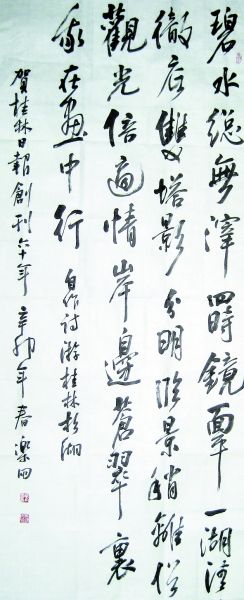 碧水總無滓四時鏡面平一湖澄
徹底雙塔影分明臨景稍離俗
觀光倍適情岸邊蒼翠裏
我在畫中行 自作詩游桂林杉湖
賀桂林日報創刊六十年 辛卯年春